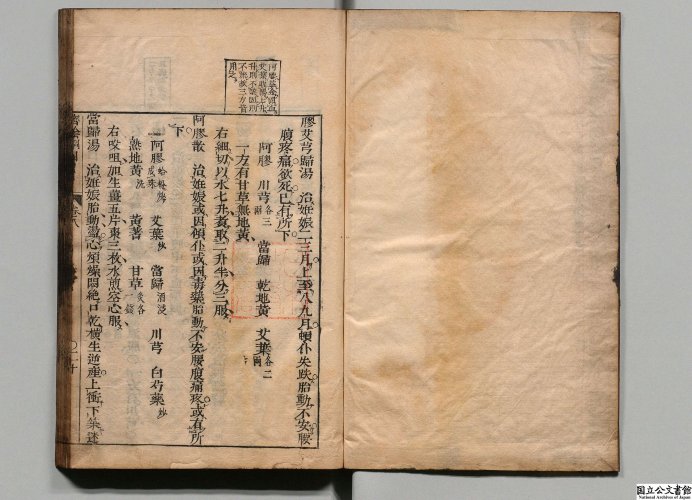 膠艾芎歸湯 治姙娠二三月上至八九月頓仆失跌胎動不安腰
腹疼痛欲死已有所下
阿膠 川芎各三兩 當歸 乾地黃 艾葉各二兩
一方有甘草無地黃
右細切以水七升煑取二升半分三服
阿膠散 治姙娠或因頓仆或因毒藥胎動不安腰腹痛疼或有所
下
阿膠蛤粉炒成珠 艾葉炒 當歸酒浸 川芎 白芍藥炒
熟地黃洗 黃蓍 甘草炙各一錢
右㕮咀加生薑五片棗三枚水煎空心服
當歸湯 治姙娠胎動盪心煩燥悶絶口乾橫生逆産上衝下築迷
卷八
二十
国立公文書館
National Archives of Japan